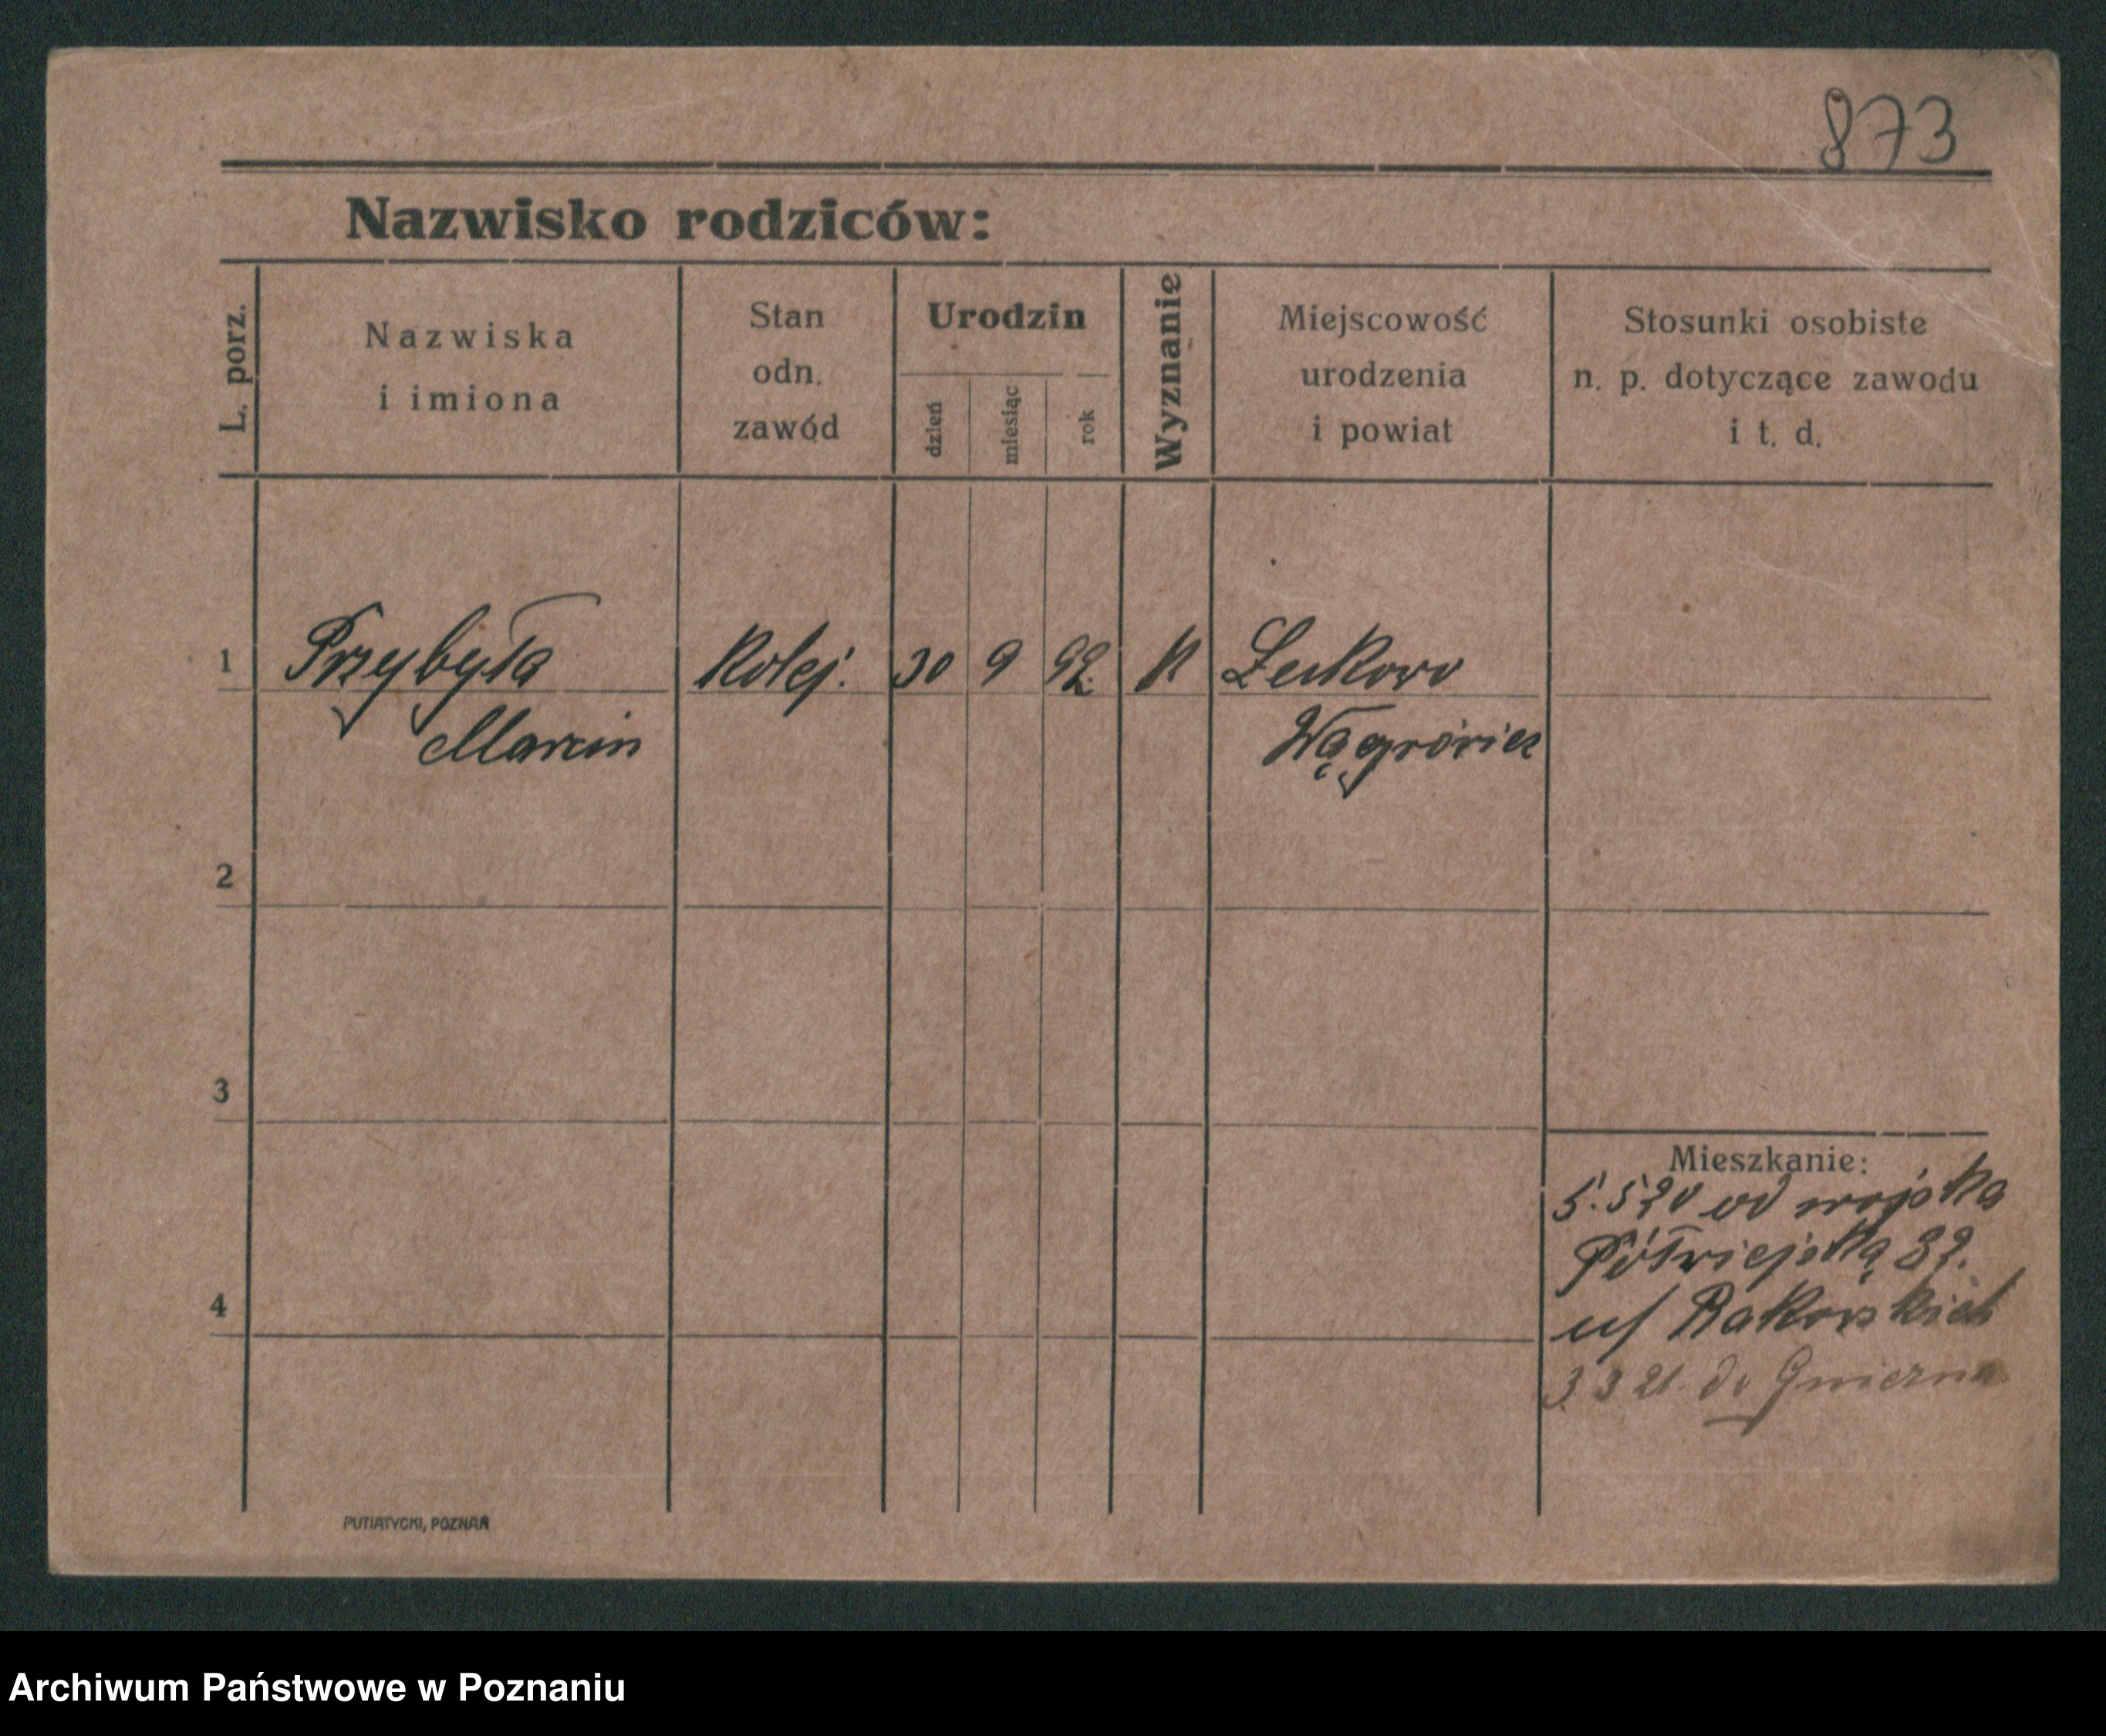 873
Nazwisko rodziców:
L. porz.
Nazwiska
i imiona
Stan
odn.
zawód
Urodzin
dzień
miesiąc
rok
Wyznanie
Miejscowość
urodzenia
i powiat
Stosunki osobiste
n. p. dotyczące zawodu
i t. d.
1 Przybyła Kolej. 30 9 92. K
Marcin Wągrówiec
2
3
4
Mieszkanie:
5. 5 20 od wojska
Półwiejską 32.
u/ Rakowskich
3 3 21. do Gniezna
PUTIATYCKI, POZNAŃ
Archiwum Państwowe w Poznaniu